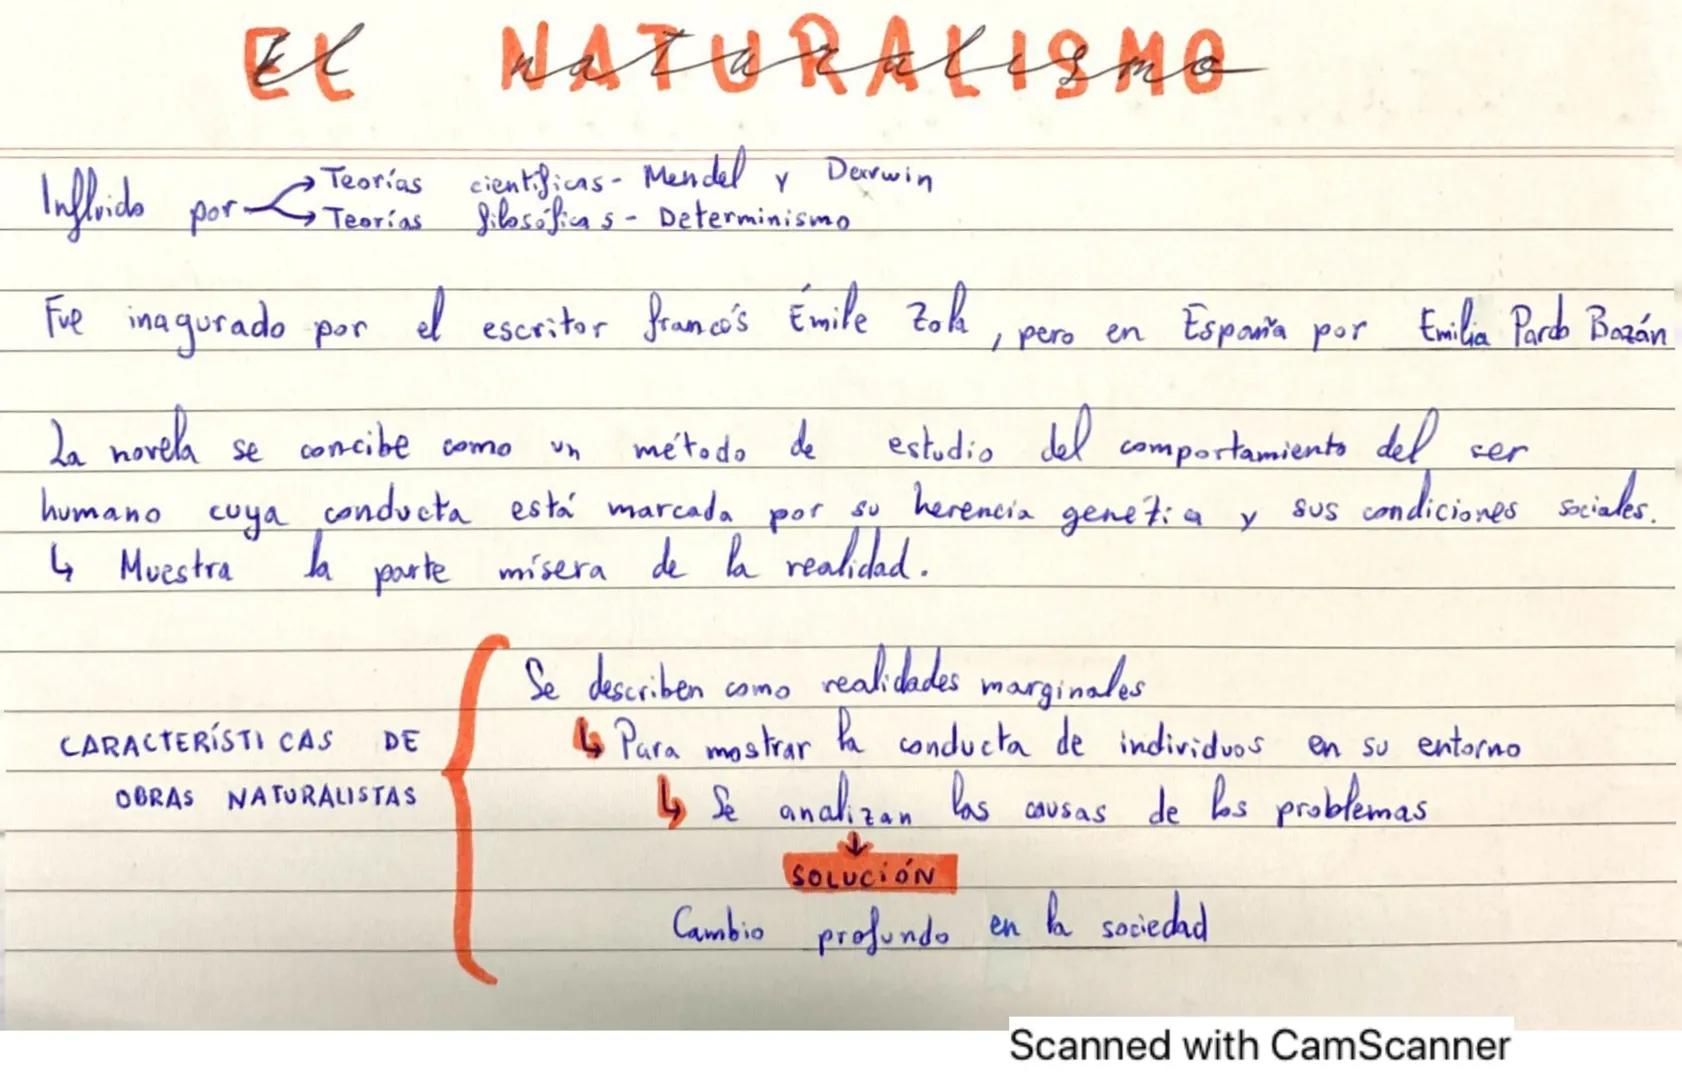 El NATURALISMO
Influido por → Teorías científicas - Mendel y Darwin
→ Teorías filosóficas - Determinismo
Fue inagurado por el escritor francés Émile Zola, pero en España por Emilia Pardo Bazán
La novela se concibe como un método de estudio del comportamiento del ser
humano cuya conducta está marcada por su herencia genética y sus condiciones sociales.
↳ Muestra la parte mísera de la realidad.
CARACTERÍSTICAS DE
OBRAS NATURALISTAS
Se describen como realidades marginales
↳ Para mostrar la conducta de individuos en su entorno
↳ Se analizan las causas de los problemas
↓
SOLUCIÓN
Cambio profundo en la sociedad
Scanned with CamScanner